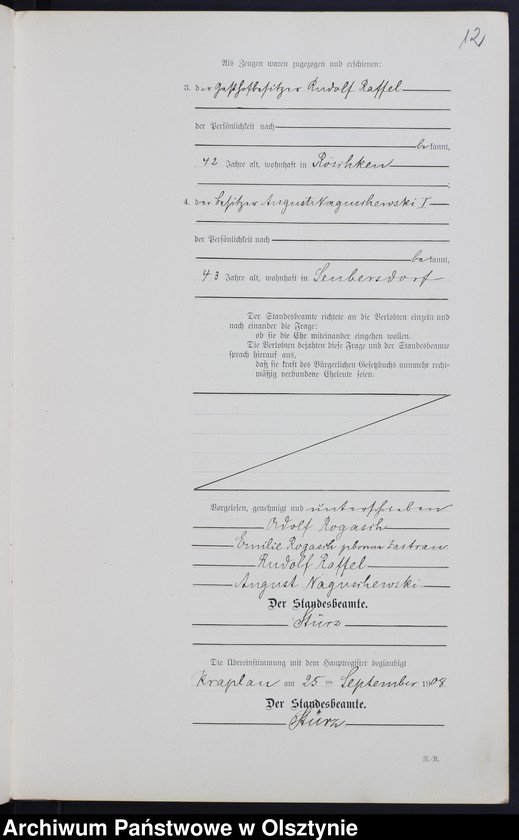 12
Als Zeugen waren zugezogen und erschienen:
3. der Gasthofbesitzer Rudolf Raffel
der Persönlichkeit nach
bekannt,
42 Jahre alt, wohnhaft in Röschken
;
4. der Besitzer August Naguschewski I
der Persönlichkeit nach
bekannt,
43 Jahre alt, wohnhaft in Seubersdorf
Der Standesbeamte richtete an die Verlobten einzeln und
nach einander die Frage:
ob sie die Ehe miteinander eingehen wollen.
Die Verlobten bejahten diese Frage und der Standesbeamte
sprach hierauf aus,
daß sie kraft des Bürgerlichen Gesetzbuchs nunmehr recht-
mäßig verbundene Eheleute seien.
Vorgelesen, genehmigt und unterschrieben
Adolf Rogasch
Emilie Rogasch geborene Zastrau
Rudolf Raffel
August Naguschewski
Der Standesbeamte.
Stürz
Die Übereinstimmung mit dem Hauptregister beglaubigt
Kraplau am 25 ten September 1908.
Der Standesbeamte.
Stürz
Archiwum Państwowe w Olsztynie